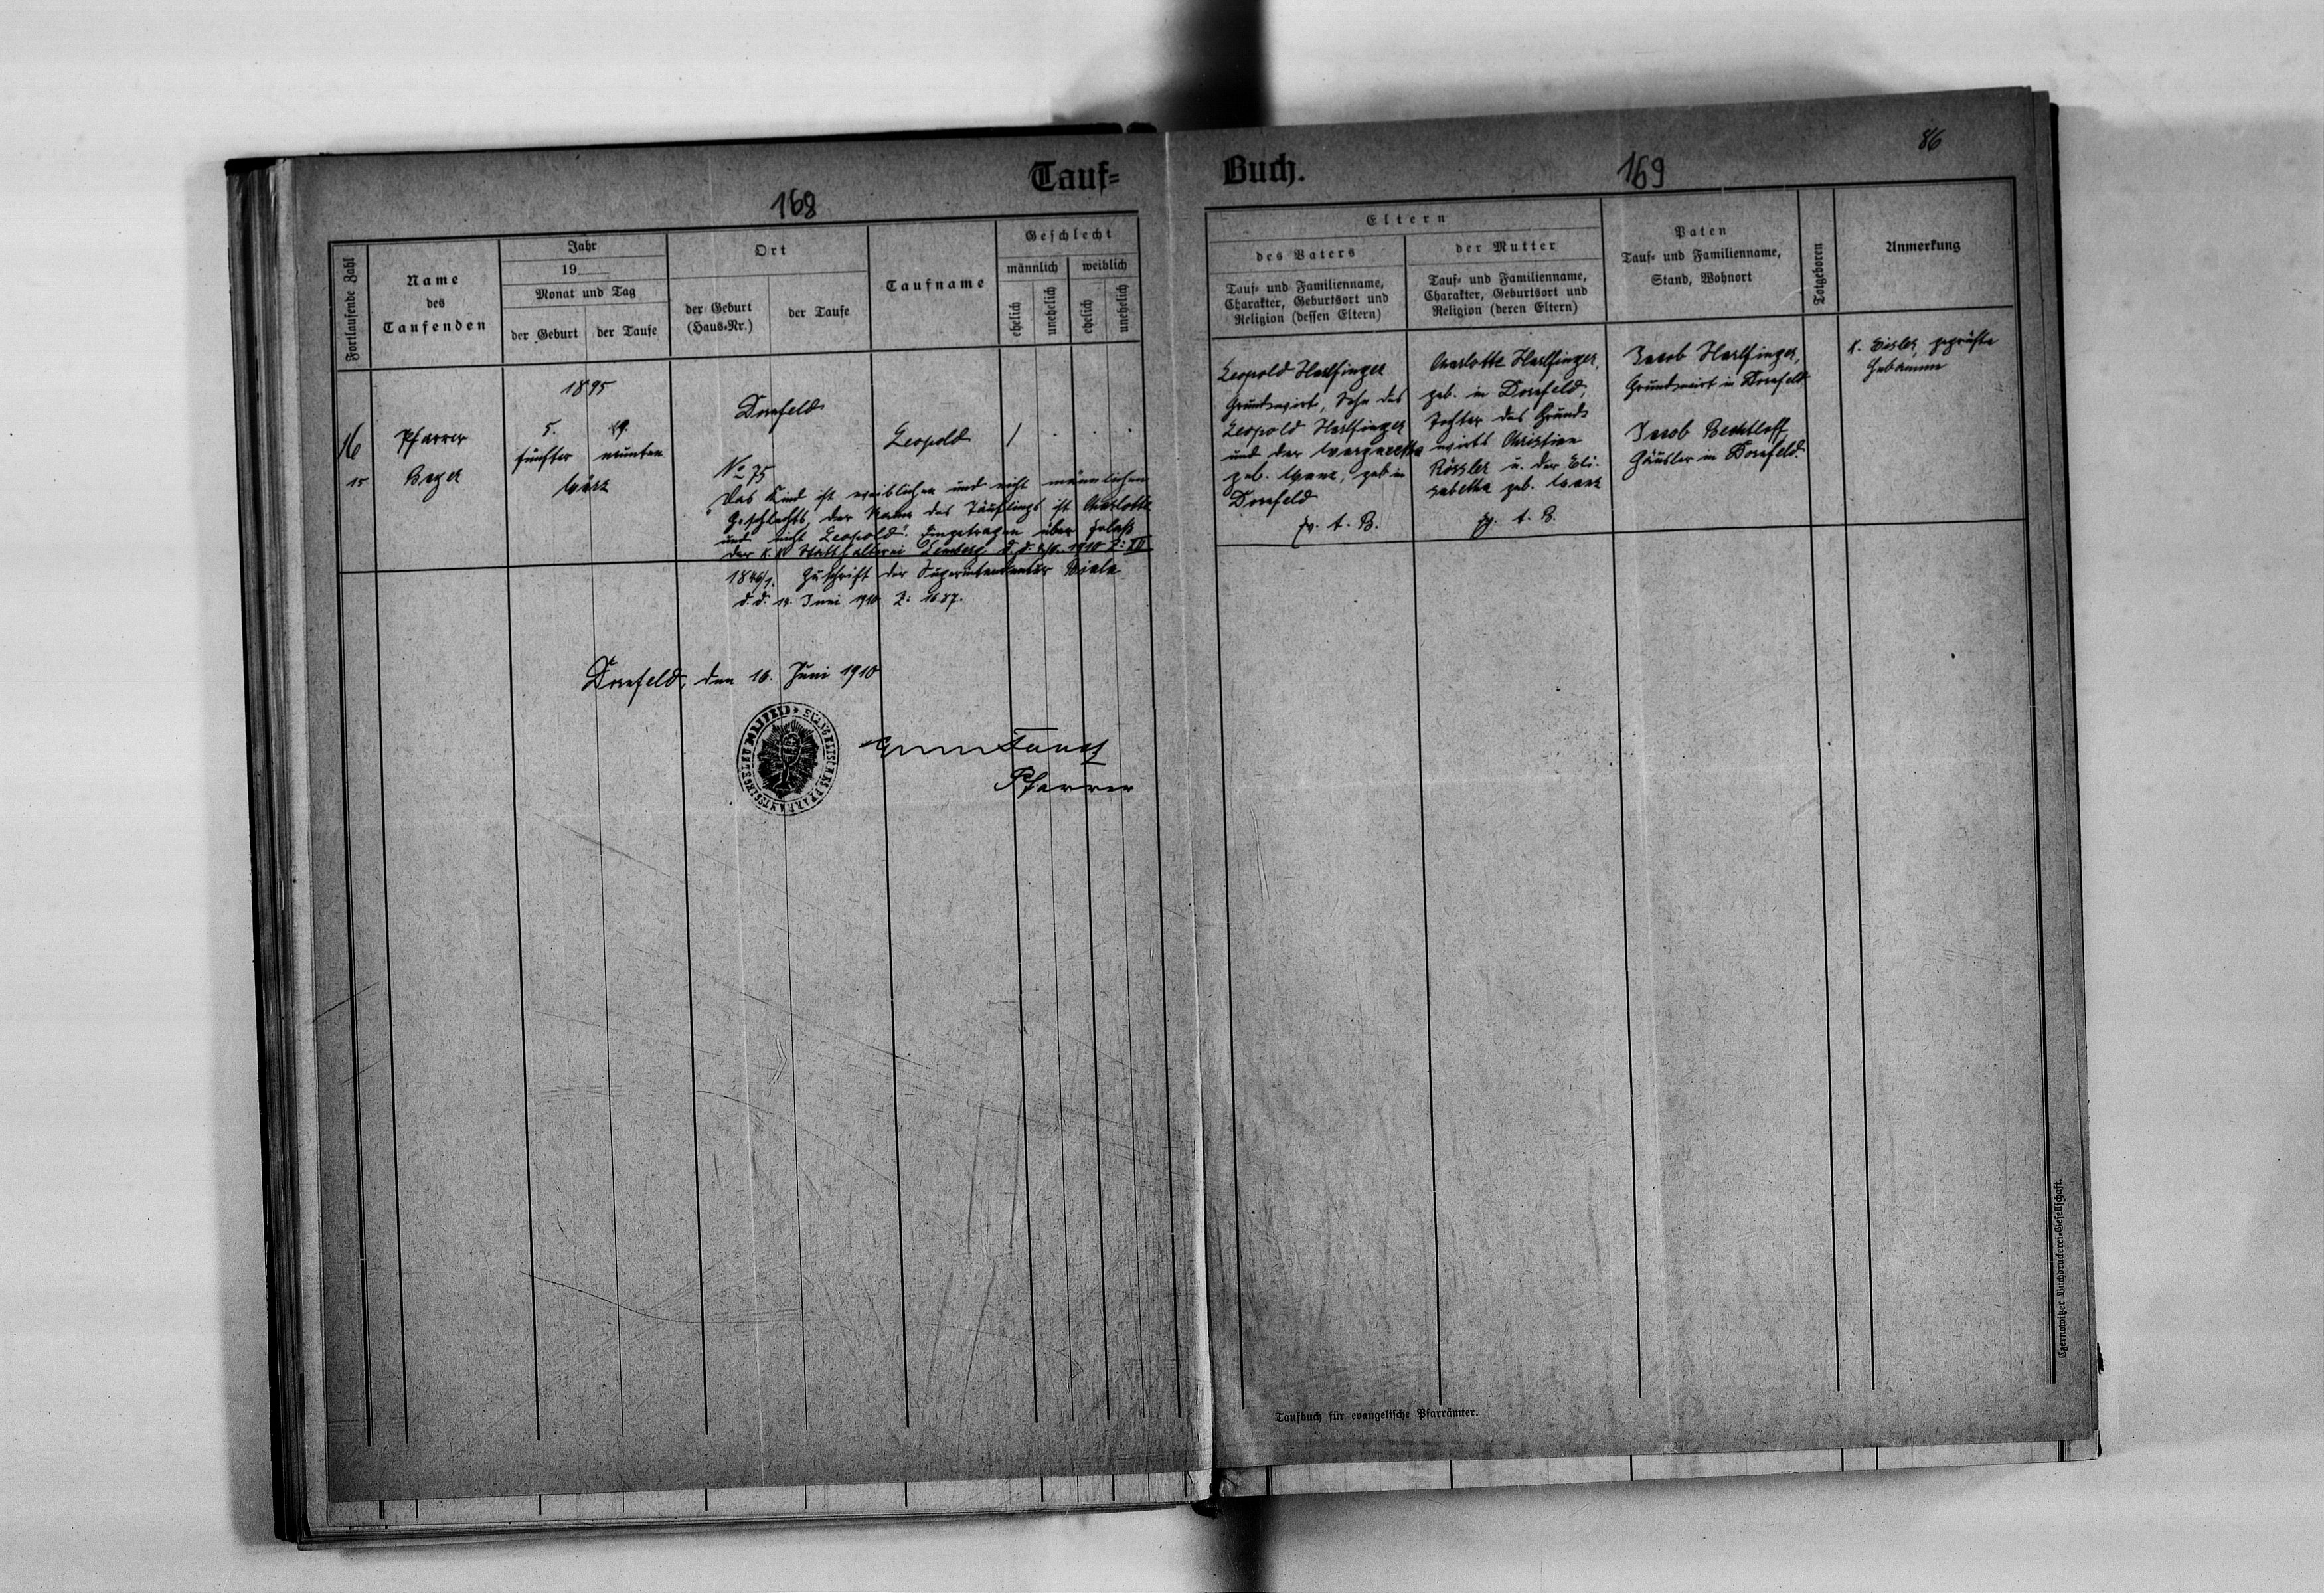 Tauf=
168
Fortlaufende Zahl
Name
des
Taufenden
Jahr
19
Monat und Tag
der Geburt
der Taufe
Ort
der Geburt
(Haus-Nr.)
der Taufe
Taufname
Geschlecht
männlich
weiblich
ehelich
unehelich
ehelich
unehelich
1895
16
15
Pfarrer
Beger
5.
fünfter
19.
neunten
März
Dornfeld
No 75
Leopold
/
Das Kind ist weiblichen und nicht männlichen
Geschlechts, der Name des Täuflings ist Charlotte
und nicht Leopold". Eingetragen über Erlaß
der k. k. Statthalterei Lemberg d. d. 1910 Z: XII
1846/1. Zuschrift der Superintendentur Biala
d. d. 14. Juni 1910 Z: 1687.
Dornfeld, den 16. Juni 1910
Pfarrer
Buch.
169
86
Eltern
des Vaters
Tauf= und Familienname,
Charakter, Geburtsort und
Religion (dessen Eltern)
der Mutter
Tauf= und Familienname,
Charakter, Geburtsort und
Religion (deren Eltern)
Paten
Tauf= und Familienname,
Stand, Wohnort
Totgeboren
Anmerkung
Leopold Harlfinger
Grundwirt, Sohn des
Leopold Harlfinger
und der Margaretha
geb. Manz, geb in
Dornfeld
ev. A. B.
Charlotte Harlfinger,
geb. in Dornfeld,
Tochter des Grund=
wirts Christian
Rössler u. der Eli=
sabetha geb. Manz
ev. A. B.
Jacob Harlfinger,
Grundwirt in Dornfeld
Jacob Bechtloff,
Häusler in Dornfeld.
K. Eisler, geprüfte
Hebamme
Czernowitzer Buchdruckerei-Gesellschaft.
Taufbuch für evangelische Pfarrämter.